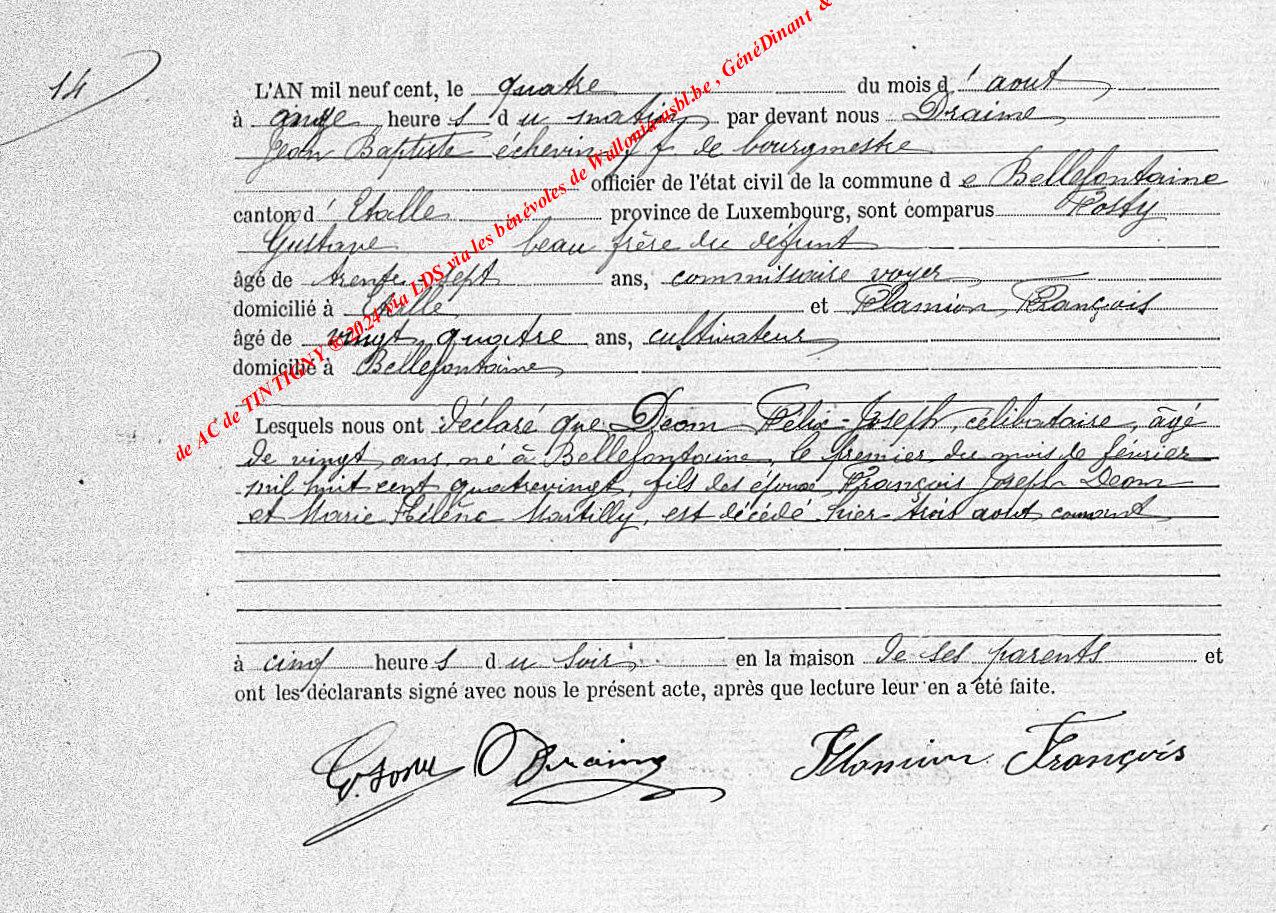 14
L'AN mil neuf cent, le quatre du mois d'aout
à onze heures du matin par devant nous Draime
Jean Baptiste échevin f. f. de bourgmestre
officier de l'état civil de la commune de Bellefontaine
canton d'Etalle province de Luxembourg, sont comparus
Gustave beau frère du défunt
âgé de trente sept ans, commissaire voyer
domicilié à Etalle et Flamion François
âgé de vingt quatre ans, cultivateur
domicilié à Bellefontaine
Lesquels nous ont déclaré que Deom Félix-Joseph, célibataire, âgé
de vingt ans, né à Bellefontaine, le premier du mois de février
mil huit cent quatrevingt, fils des époux François Joseph Deom
et Marie Hélène Martilly, est décédé hier trois aout courant
à cinq heures du soir en la maison de ses parents et
ont les déclarants signé avec nous le présent acte, après que lecture leur en a été faite.
Draime Flamion François
de AC de TINTIGNY ®2024 via LDS via les bénévoles de Wallonia-asbl.be , GénéDinant &